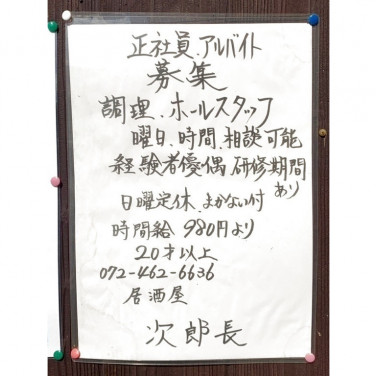 正社員、アルバイト
募集
調理、ホールスタッフ
曜日、時間、相談可能
経験者優偶 研修期間
あり
日曜定休、まかない付
時間給 980円より
20才以上
072-462-6636
居酒屋
次郎長